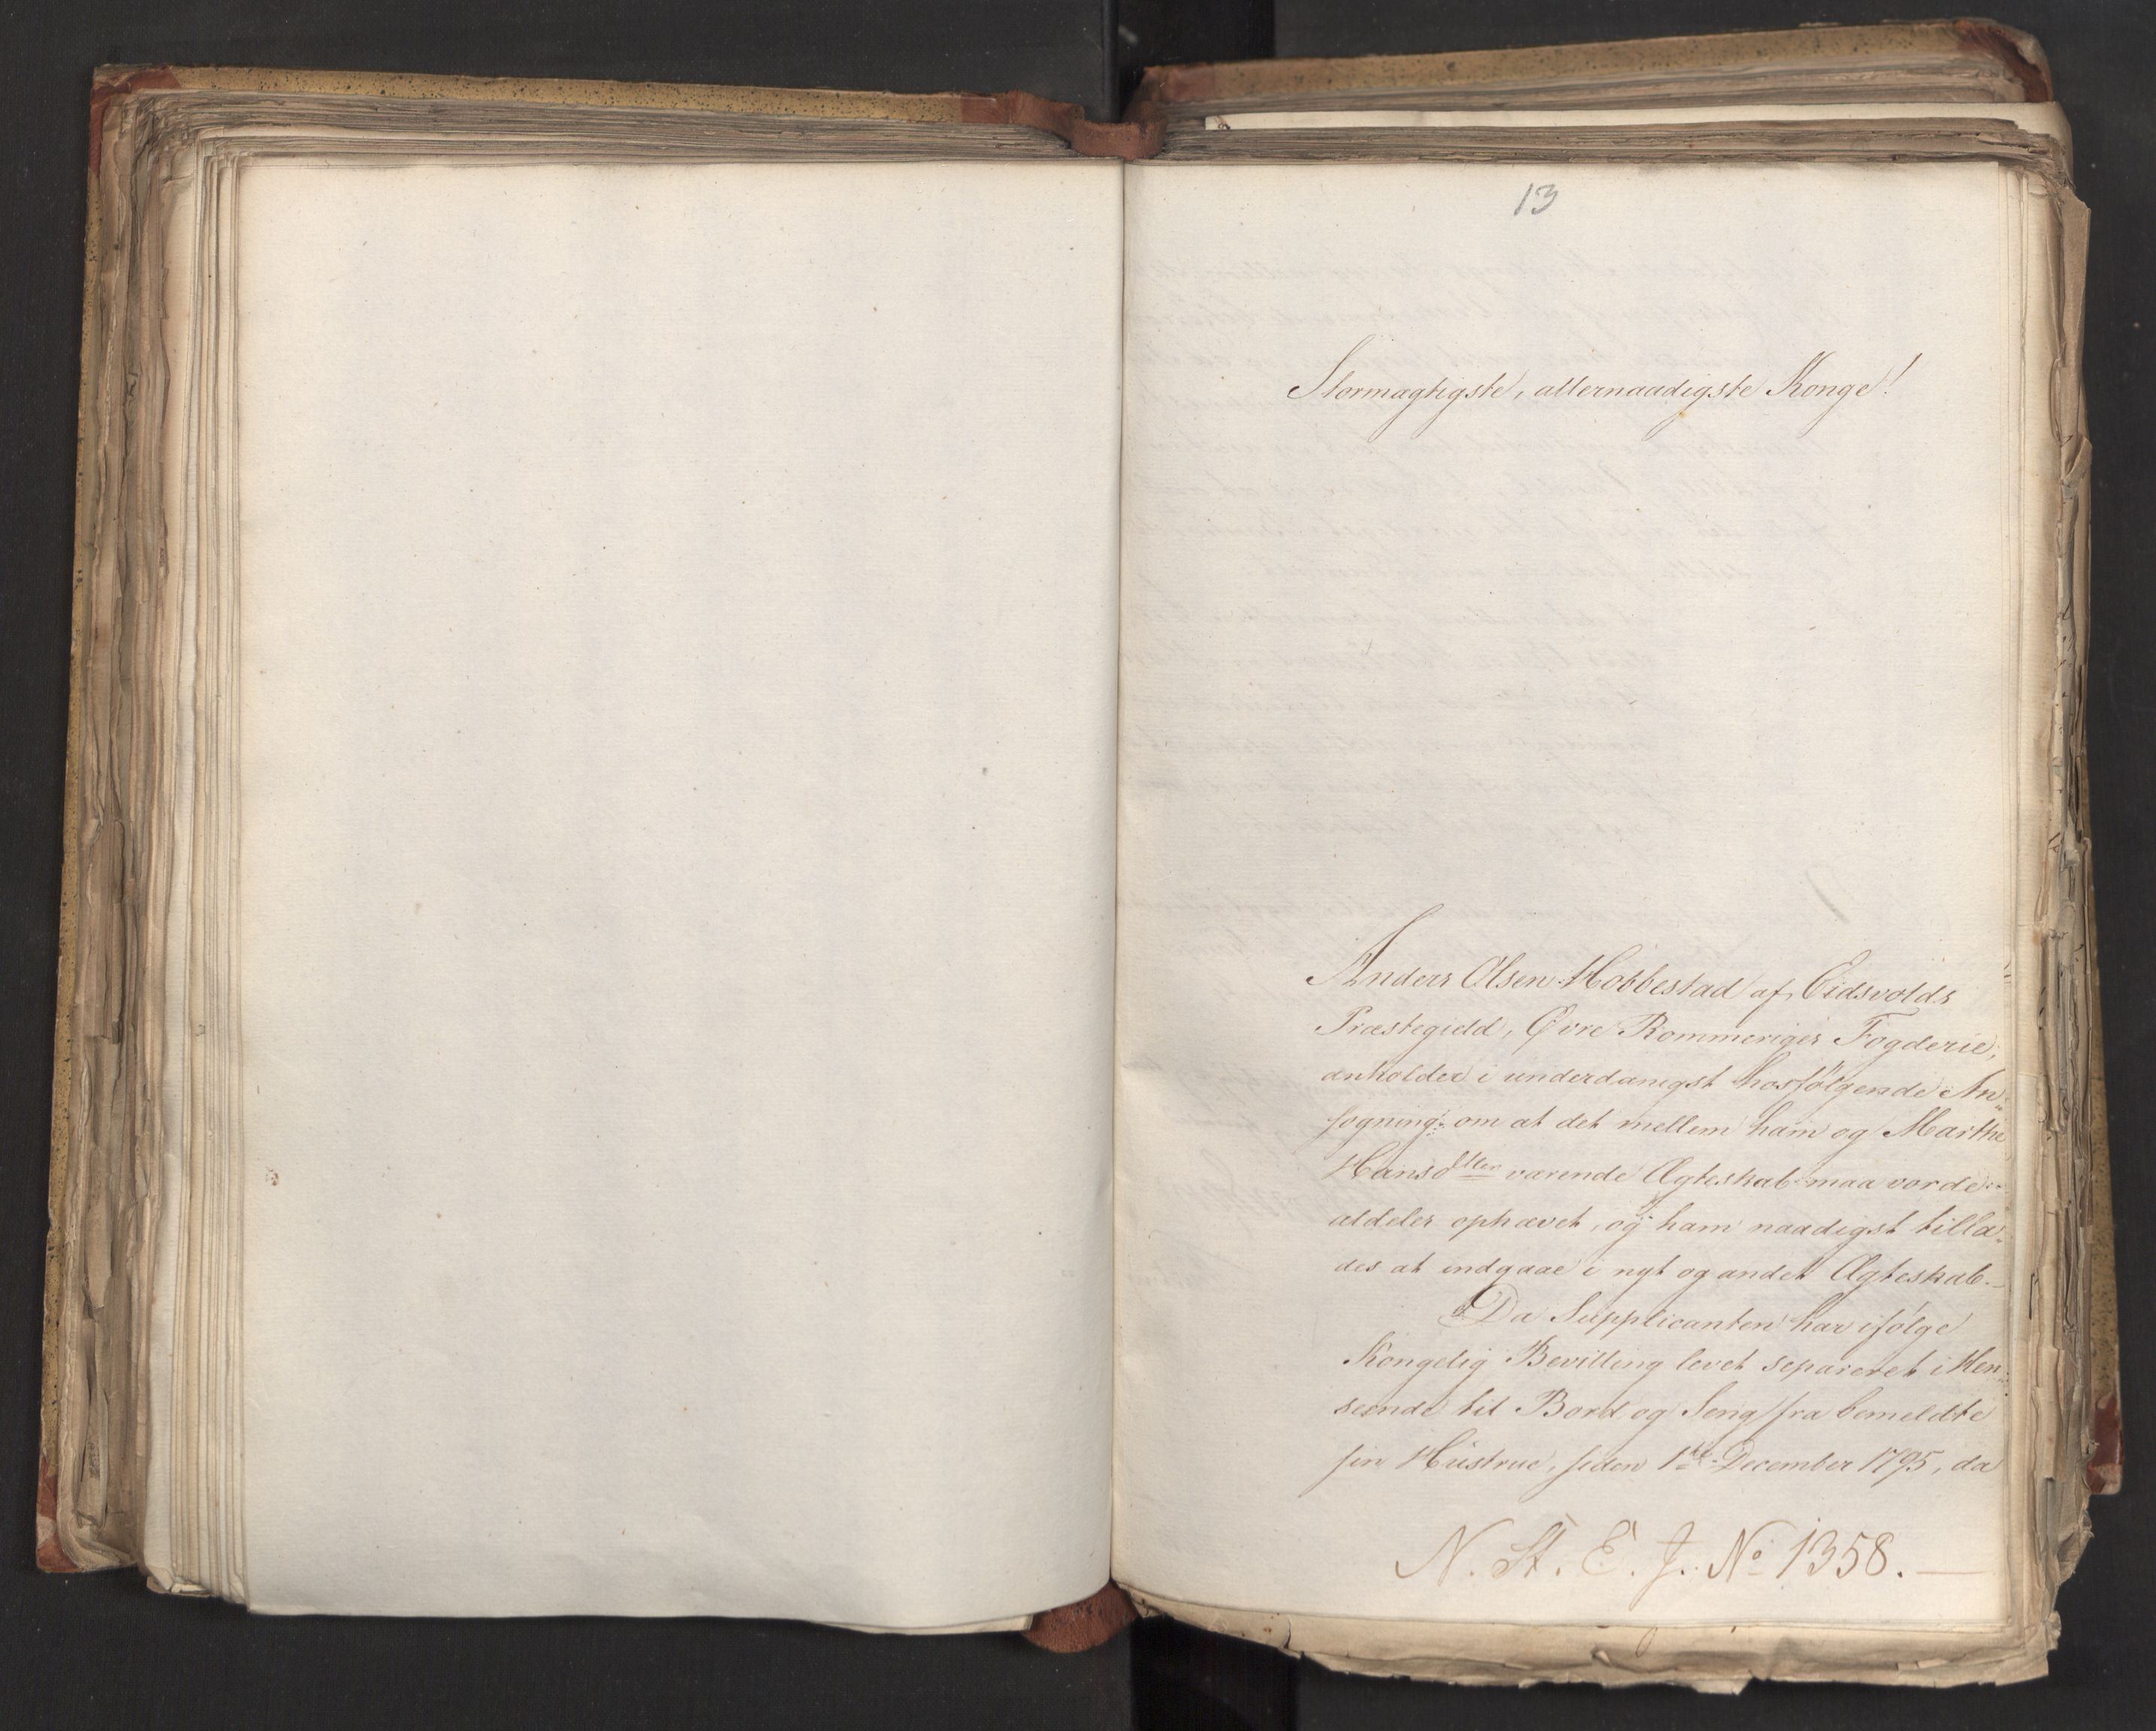 13
Stormægtigste, allernaadigste Konge!
Anders Olsen Hobbestad af Eidsvolds
Præstegield, Øvre Rommeriges Fogderie,
anholder i underdanigst hosfølgende An„
søgning om at det mellem ham og Marthe
Hansdtter værende Ægteskab maa vorde
aldeles ophævet, og ham naadigst tilla„
des at indgaae i nyt og andet Ægteskab.
Da Supplicanten har ifølge
Kongelig Bevilling levet separeret i Hen„
seende til Bord og Seng fra bemeldte
sin Hustrue, siden 1ste December 1795, da
N. St. E. J. No 1358.